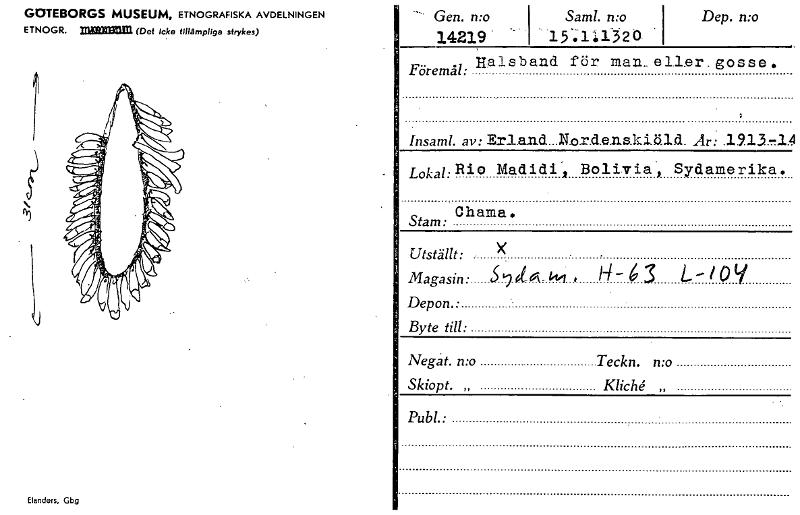 GÖTEBORGS MUSEUM, ETNOGRAFISKA AVDELNINGEN
ETNOGR. (Det icke tillämpliga strykes)
31cm
Elanders, Gbg
Gen. n:o Saml. n:o Dep. n:o
14219 15.1.1320
Föremål: Halsband för man eller gosse.
Insaml. av: Erland Nordenskiöld År: 1913-14
Lokal: Rio Madidi, Bolivia, Sydamerika.
Stam: Chama.
Utställt: X
Magasin: Sydam. H-63 L-104
Depon.:
Byte till:
Negat. n:o Teckn. n:o
Skiopt. „ Kliché „
Publ.: